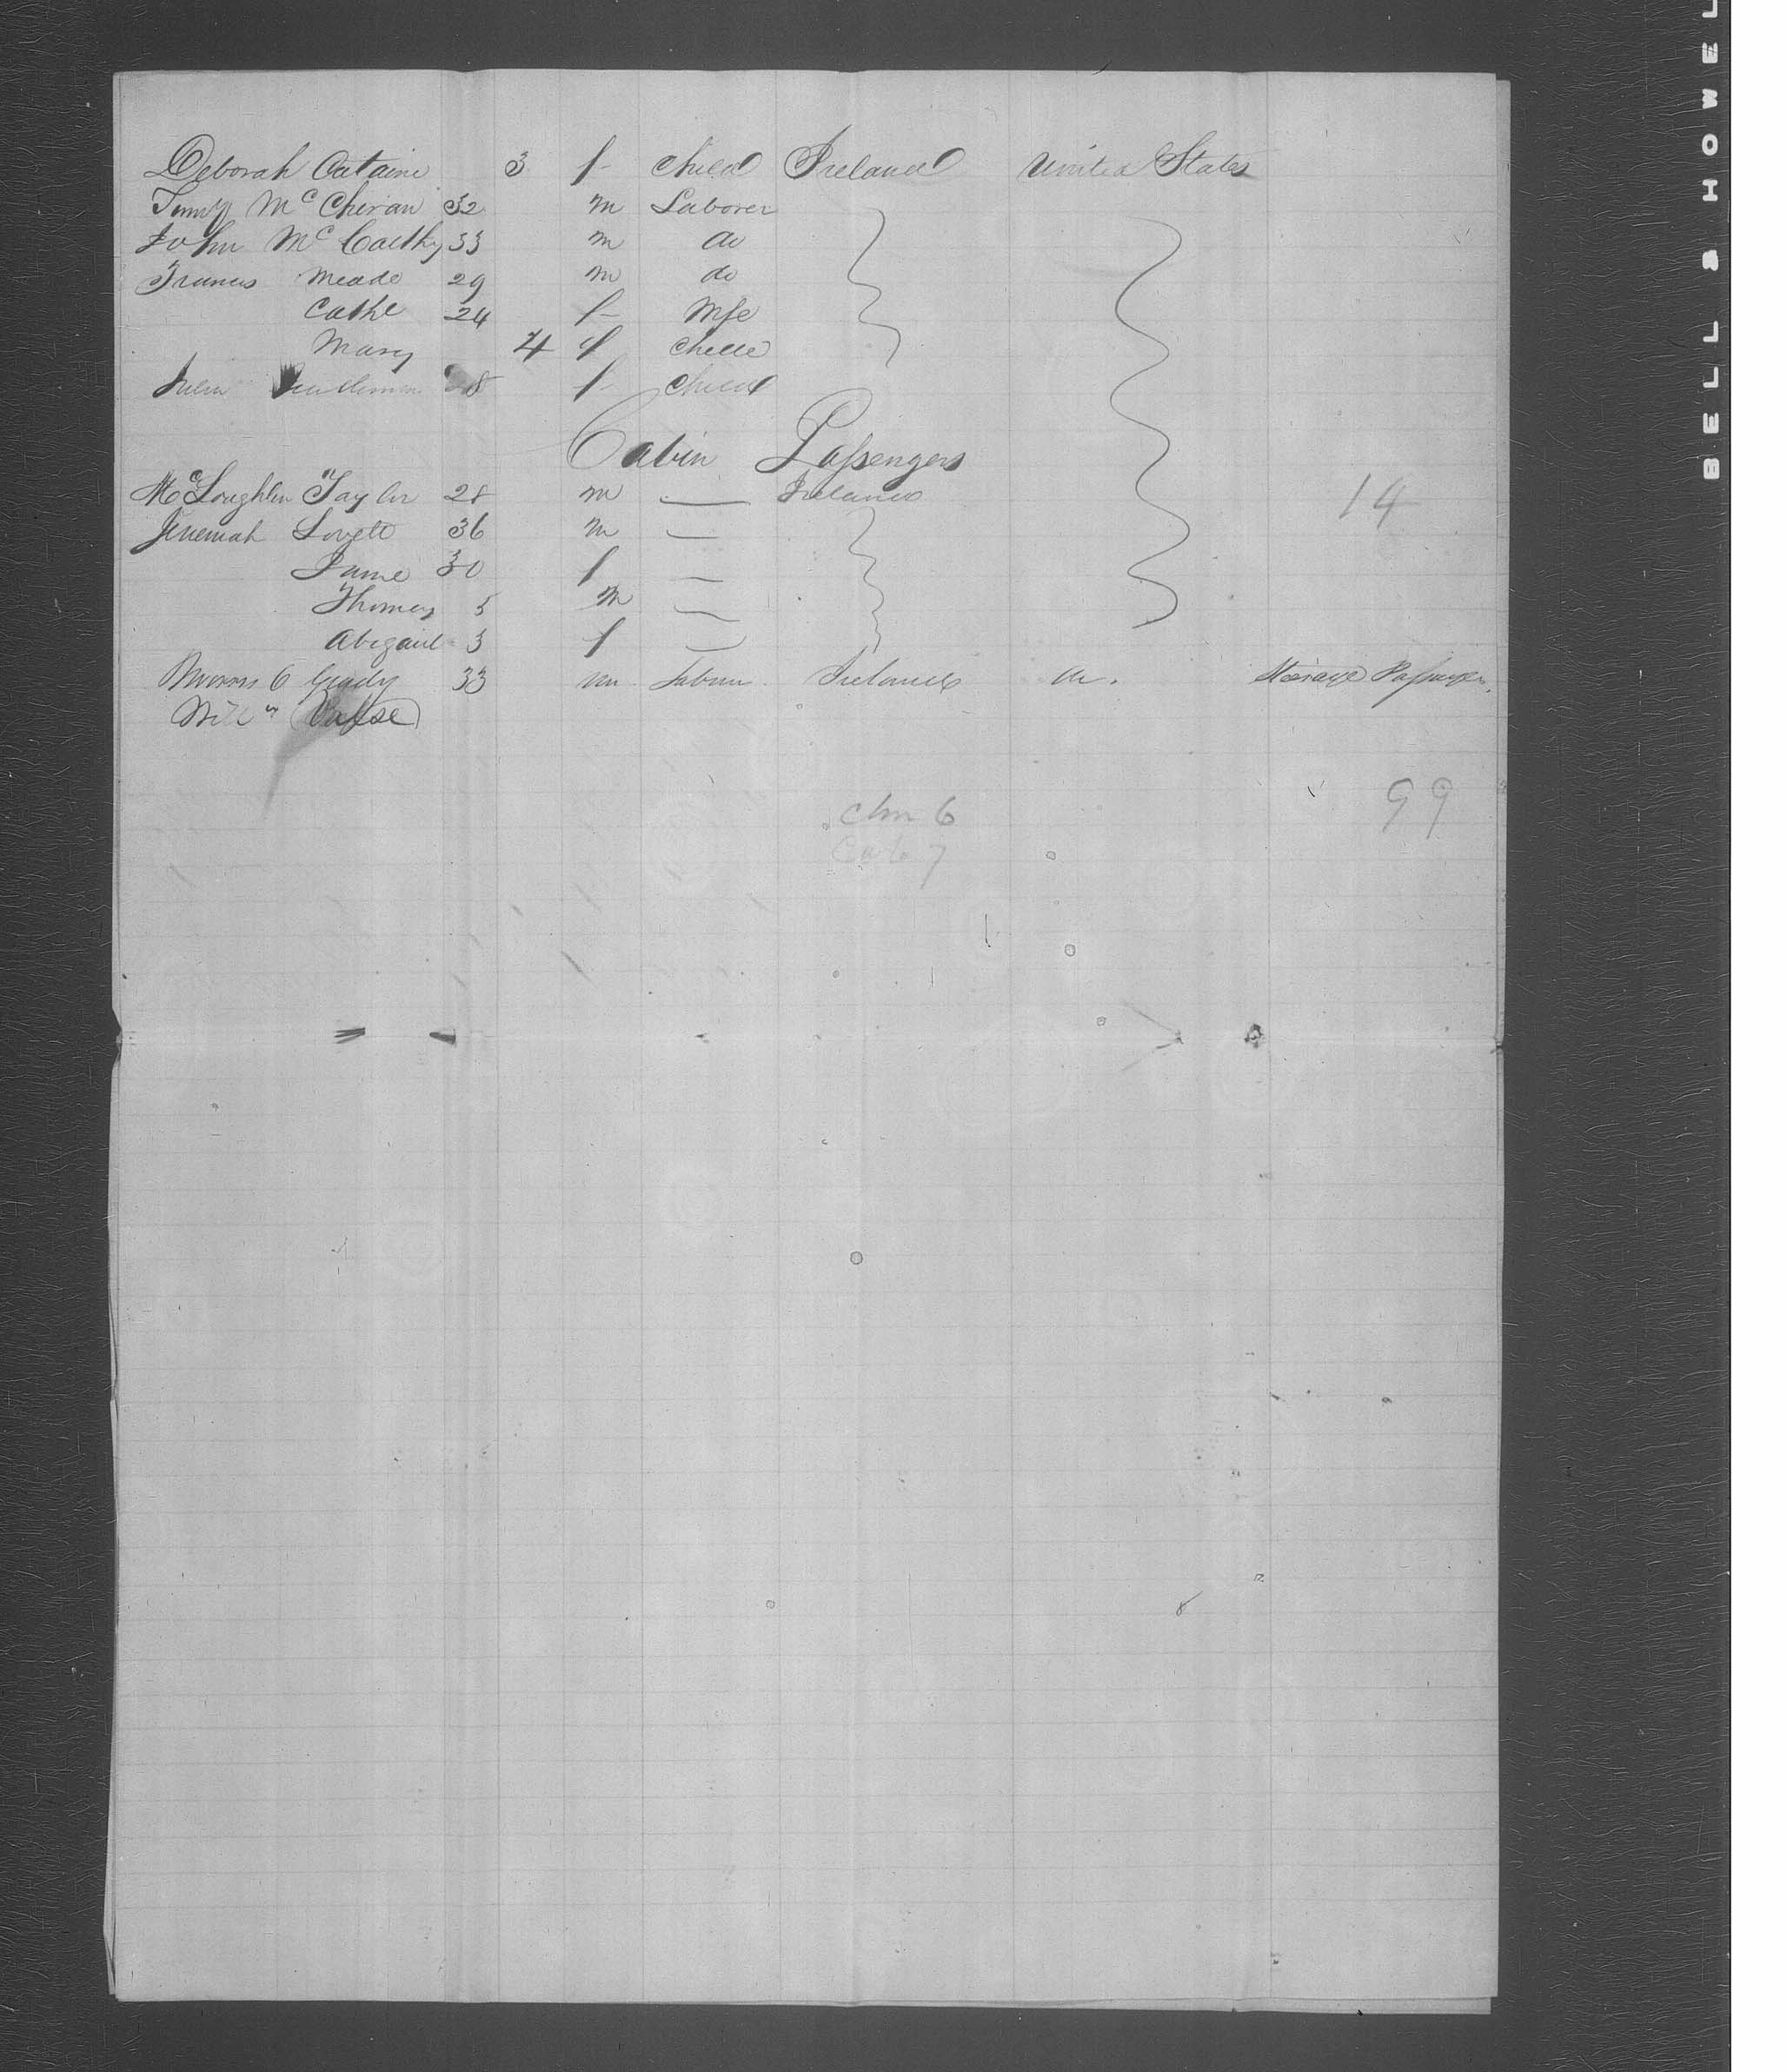 Deborah 3 f child Ireland United States
Timy Mc 32 m Laborer
John McCarthy 33 m do
Francis Meade 29 m do
Cathe 24 f Wife
Mary 4 f child
8 f child
Cabin Passengers
McLoughlin Taylor 28 m — Ireland
Jeremiah Lovett 36 m —
Jame 30 f —
Thomas 5 m —
Abigail 3 f —
14
Grady 33 m Labour Ireland do. Steerage Passenger.
99
6
Cab 7
BELL & HOWEL